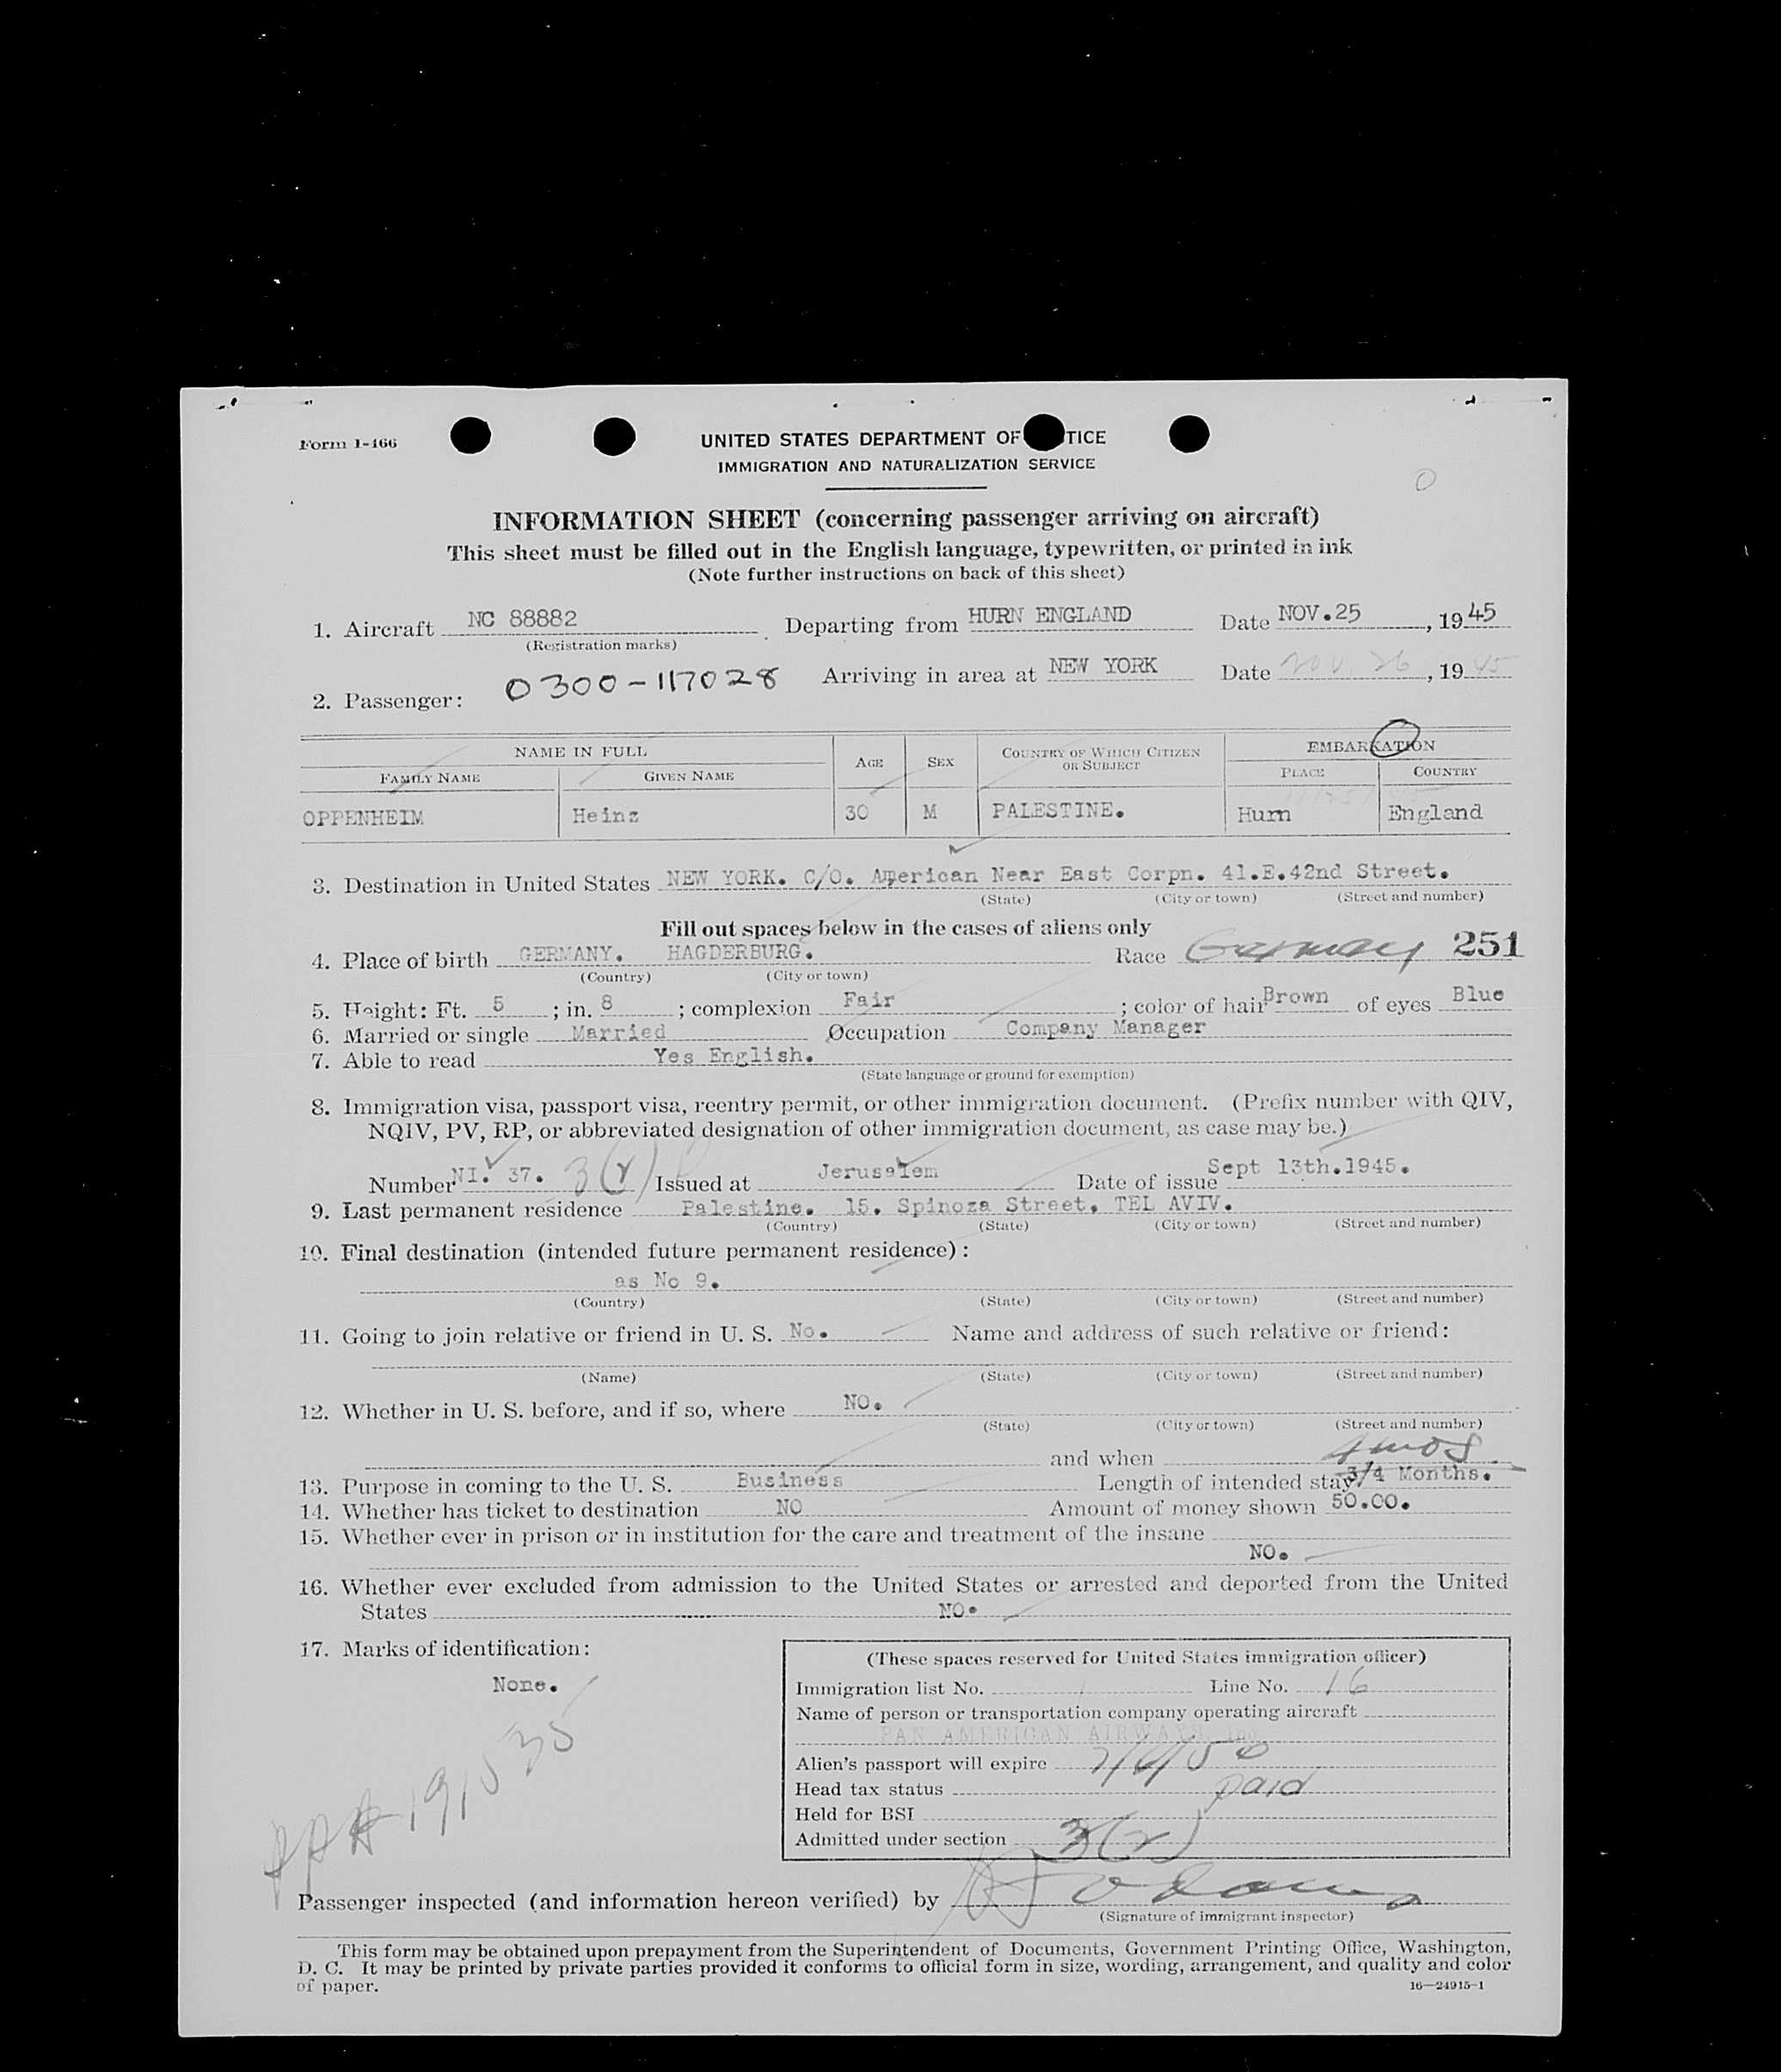 Form I-466
UNITED STATES DEPARTMENT OF TICE
IMMIGRATION AND NATURALIZATION SERVICE
INFORMATION SHEET (concerning passenger arriving on aircraft)
This sheet must be filled out in the English language, typewritten, or printed in ink
(Note further instructions on back of this sheet)
1. Aircraft NC 88882 Departing from HURN ENGLAND Date NOV.25, 1945
(Registration marks)
2. Passenger: 0300-117028 Arriving in area at NEW YORK Date Nov. 26, 1945
NAME IN FULL AGE SEX COUNTRY OF WHICH CITIZEN OR SUBJECT EMBARKATION
FAMILY NAME GIVEN NAME PLACE COUNTRY
OPPENHEIM Heinz 30 M PALESTINE. Hurn England
3. Destination in United States NEW YORK. C/O. American Near East Corpn. 41.E.42nd Street.
(State) (City or town) (Street and number)
Fill out spaces below in the cases of aliens only
4. Place of birth GERMANY. HAGDERBURG. Race Germany 251
(Country) (City or town)
5. Height: Ft. 5 ; in. 8 ; complexion Fair ; color of hair Brown of eyes Blue
6. Married or single Married Occupation Company Manager
7. Able to read Yes English.
(State language or ground for exemption)
8. Immigration visa, passport visa, reentry permit, or other immigration document. (Prefix number with QIV,
NQIV, PV, RP, or abbreviated designation of other immigration document, as case may be.)
Number NI. 37. 3(2) Issued at Jerusalem Date of issue Sept 13th.1945.
9. Last permanent residence Palestine. 15. Spinoza Street, TEL AVIV.
(Country) (State) (City or town) (Street and number)
10. Final destination (intended future permanent residence):
as No 9.
(Country) (State) (City or town) (Street and number)
11. Going to join relative or friend in U. S. No. Name and address of such relative or friend:
(Name) (State) (City or town) (Street and number)
12. Whether in U. S. before, and if so, where NO.
(State) (City or town) (Street and number)
and when
4 mos
13. Purpose in coming to the U. S. Business Length of intended stay 3/4 Months.
14. Whether has ticket to destination NO Amount of money shown 50.00.
15. Whether ever in prison or in institution for the care and treatment of the insane
NO.
16. Whether ever excluded from admission to the United States or arrested and deported from the United
States NO.
17. Marks of identification:
None.
PP# 191535
(These spaces reserved for United States immigration officer)
Immigration list No. Line No. 16
Name of person or transportation company operating aircraft
PAN AMERICAN AIRWAYS Inc.
Alien's passport will expire 7/6/50
Head tax status paid
Held for BSI
Admitted under section 3(2)
Passenger inspected (and information hereon verified) by
(Signature of immigrant inspector)
This form may be obtained upon prepayment from the Superintendent of Documents, Government Printing Office, Washington,
D. C. It may be printed by private parties provided it conforms to official form in size, wording, arrangement, and quality and color
of paper.
16—24915-1